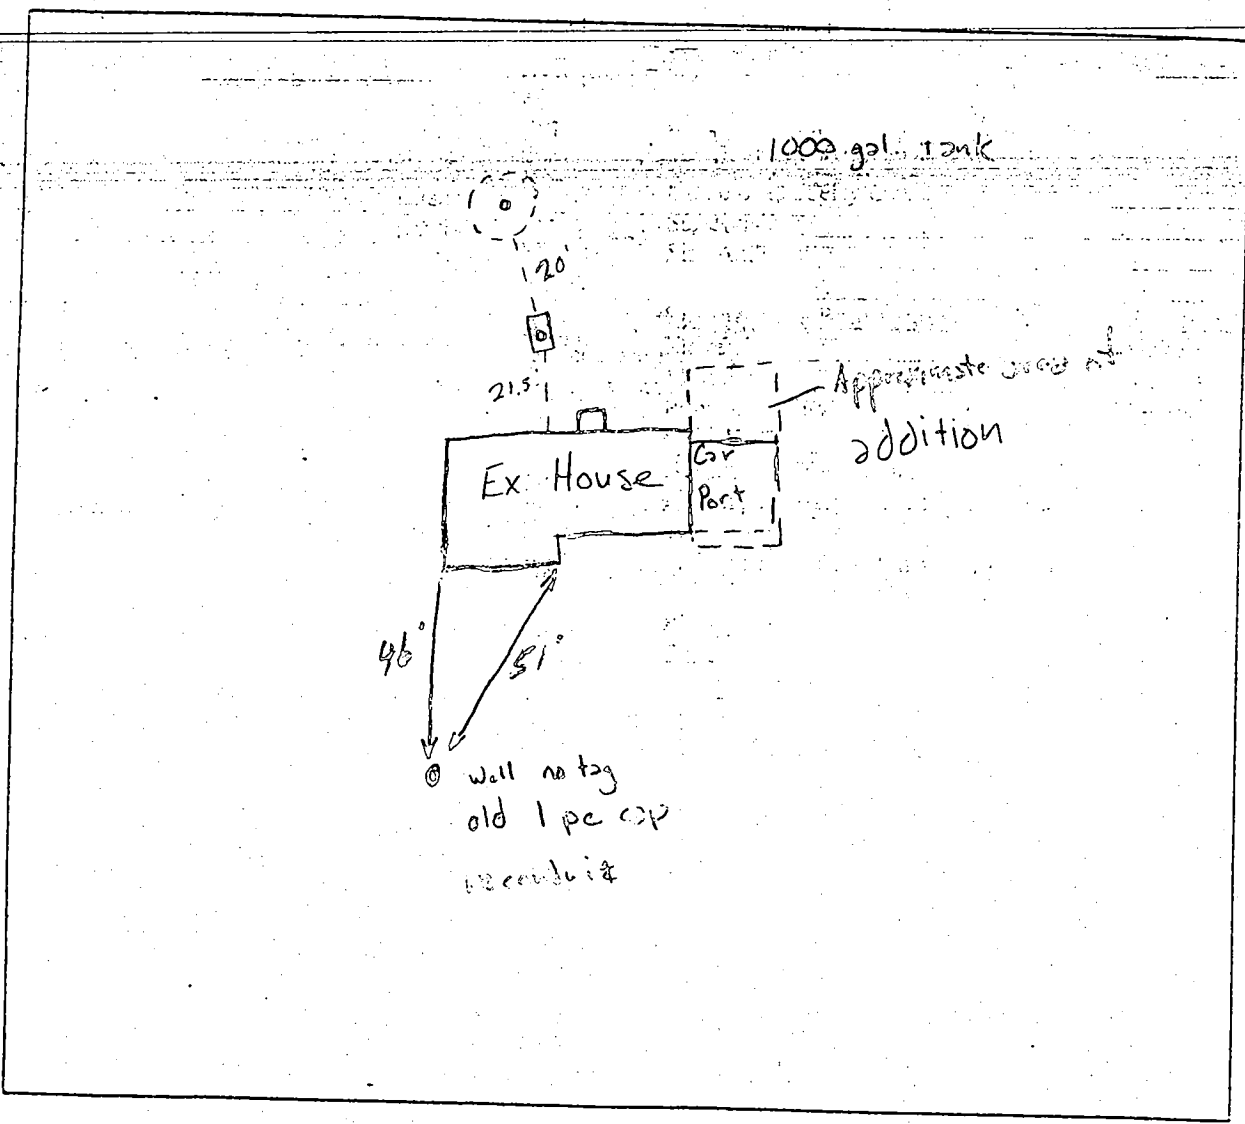 1000 gal. tank
20'
21.5'
Approximate area of
addition
Ex House
Car
Port
46'
51'
Well no tag
old 1 pc cap
no conduit